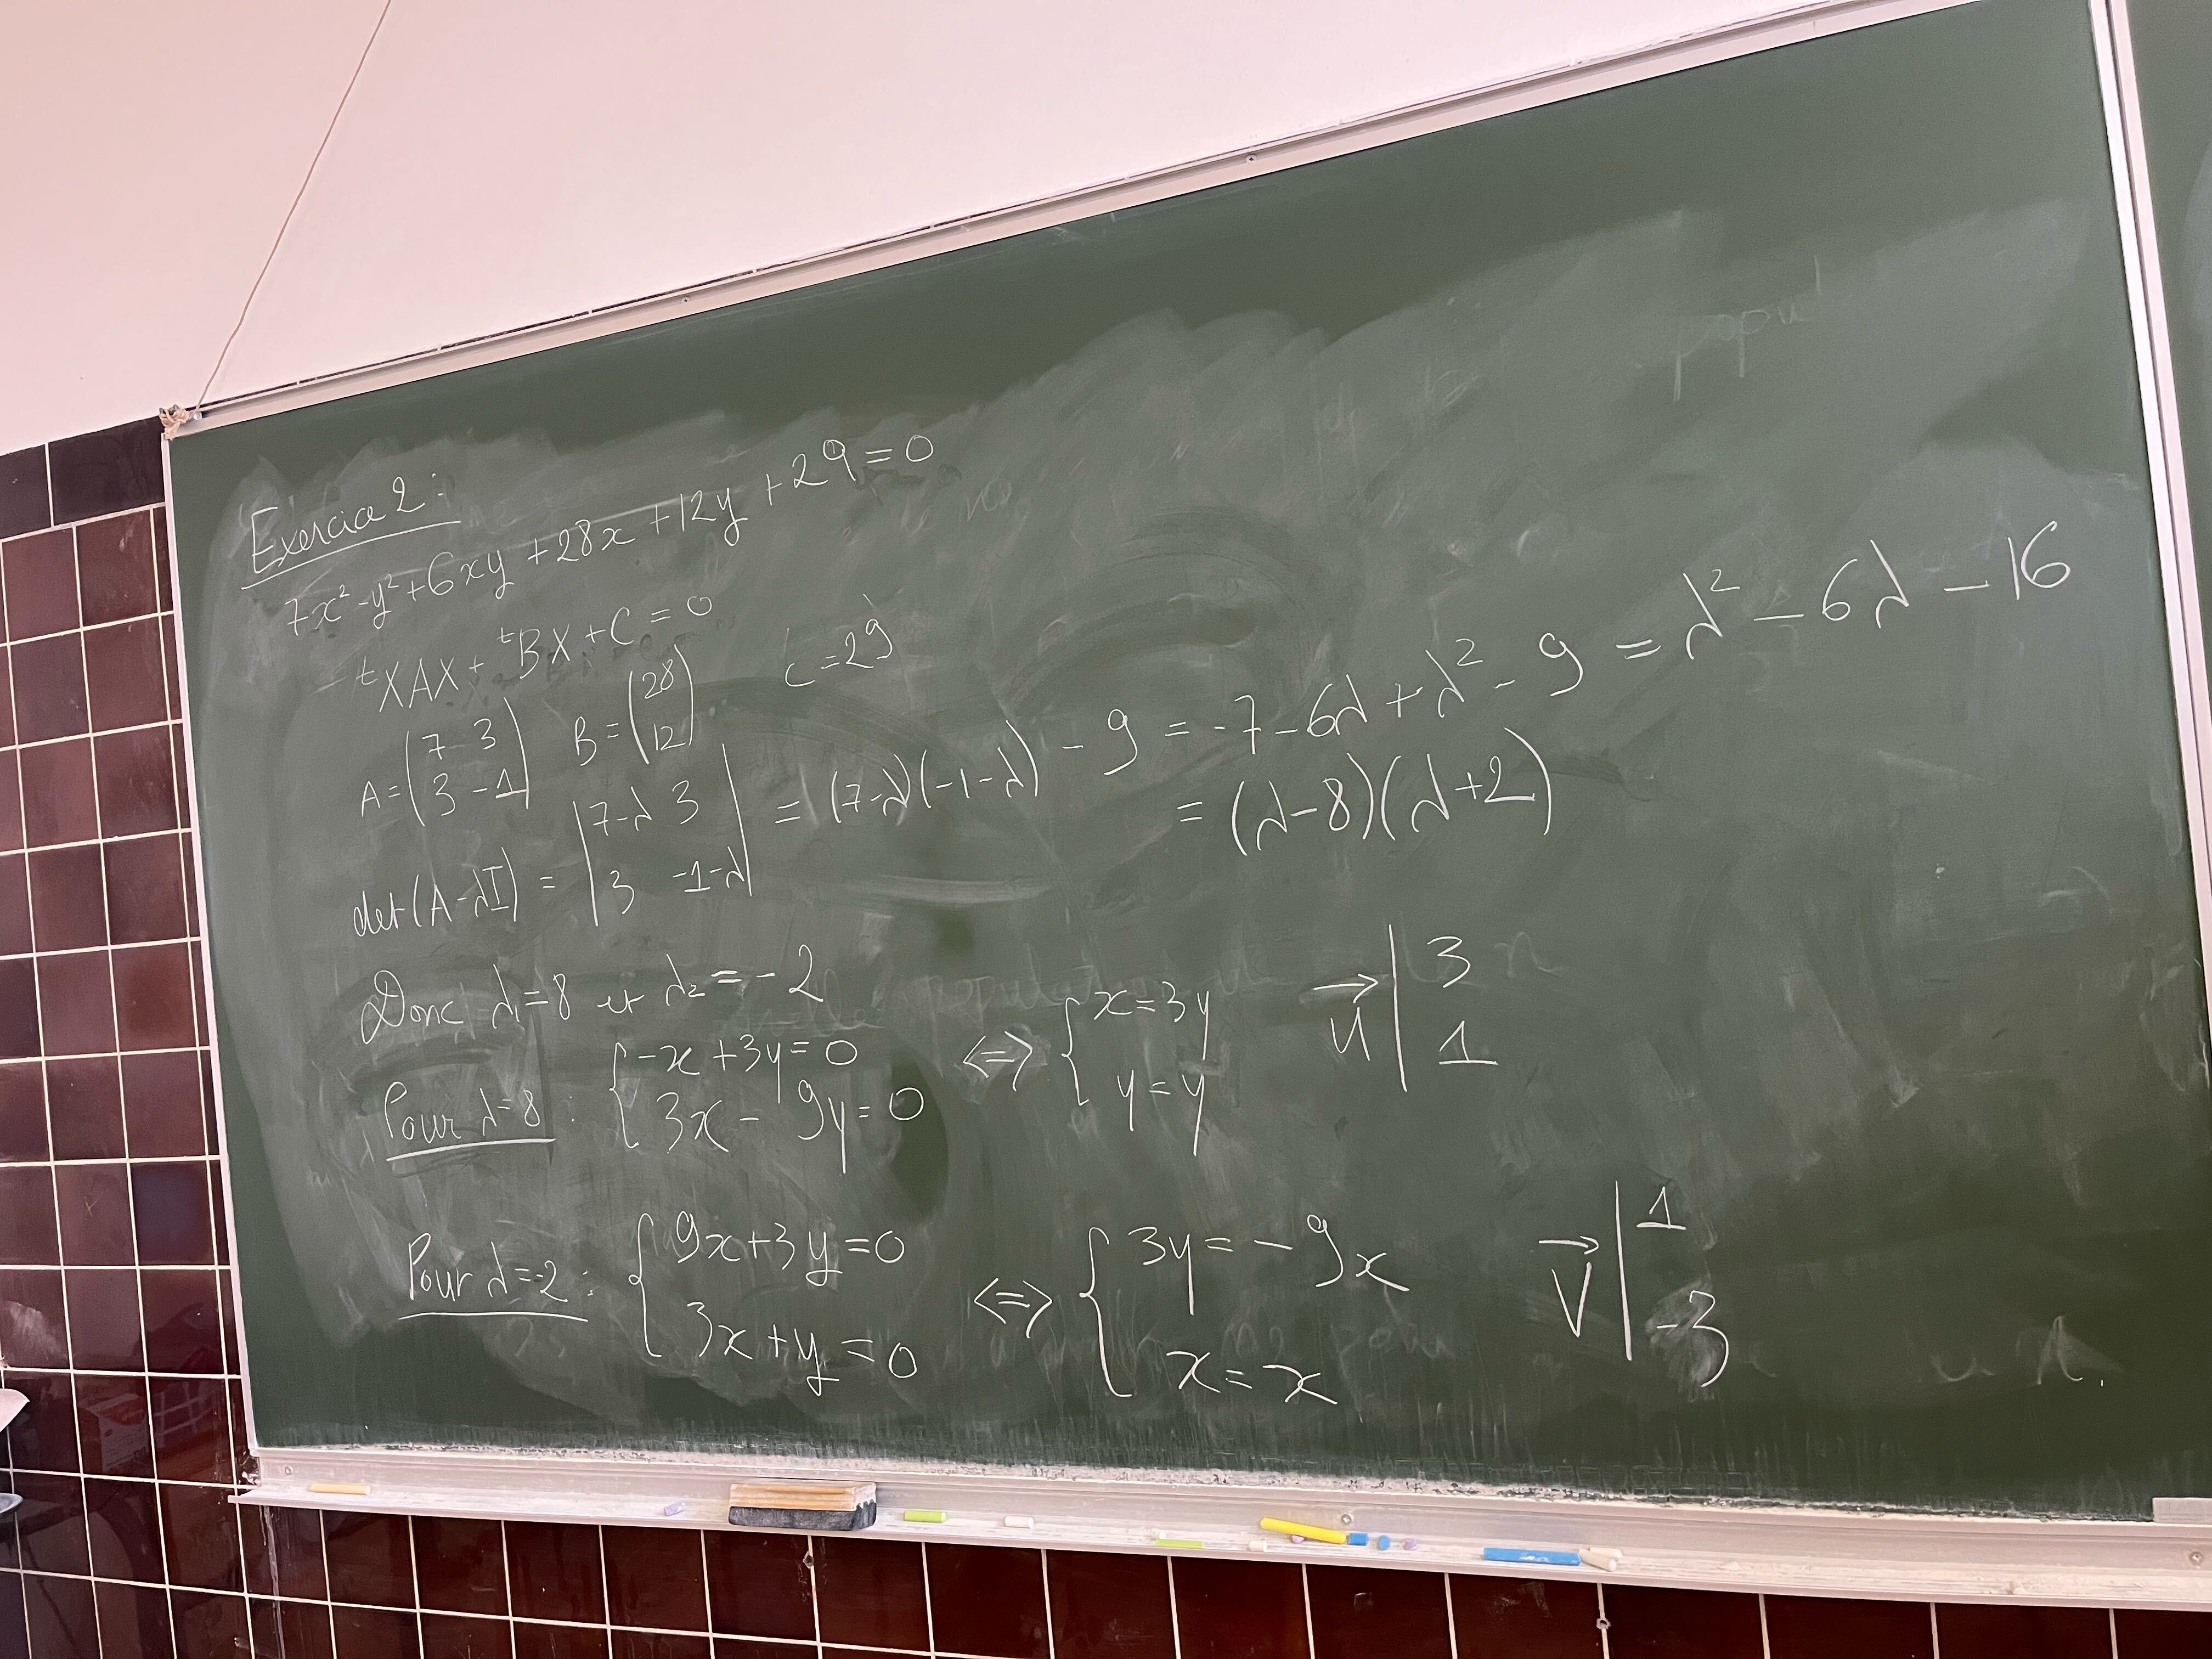 Exercice 2 :
7x² - y² + 6xy + 28x + 12y + 29 = 0
ᵗXAX + ᵗBX + C = 0
A = (7 3 / 3 -1) B = (28 / 12) C = 29
det(A-λI) = |7-λ 3 / 3 -1-λ| = (7-λ)(-1-λ) - 9 = -7 - 6λ + λ² - 9 = λ² - 6λ - 16
= (λ-8)(λ+2)
Donc λ₁ = 8 et λ₂ = -2
Pour λ=8 : { -x + 3y = 0 / 3x - 9y = 0 <=> { x = 3y / y = y u⃗ | 3 / 1
Pour λ=-2 : { 9x + 3y = 0 / 3x + y = 0 <=> { 3y = -9x / x = x V⃗ | 1 / -3